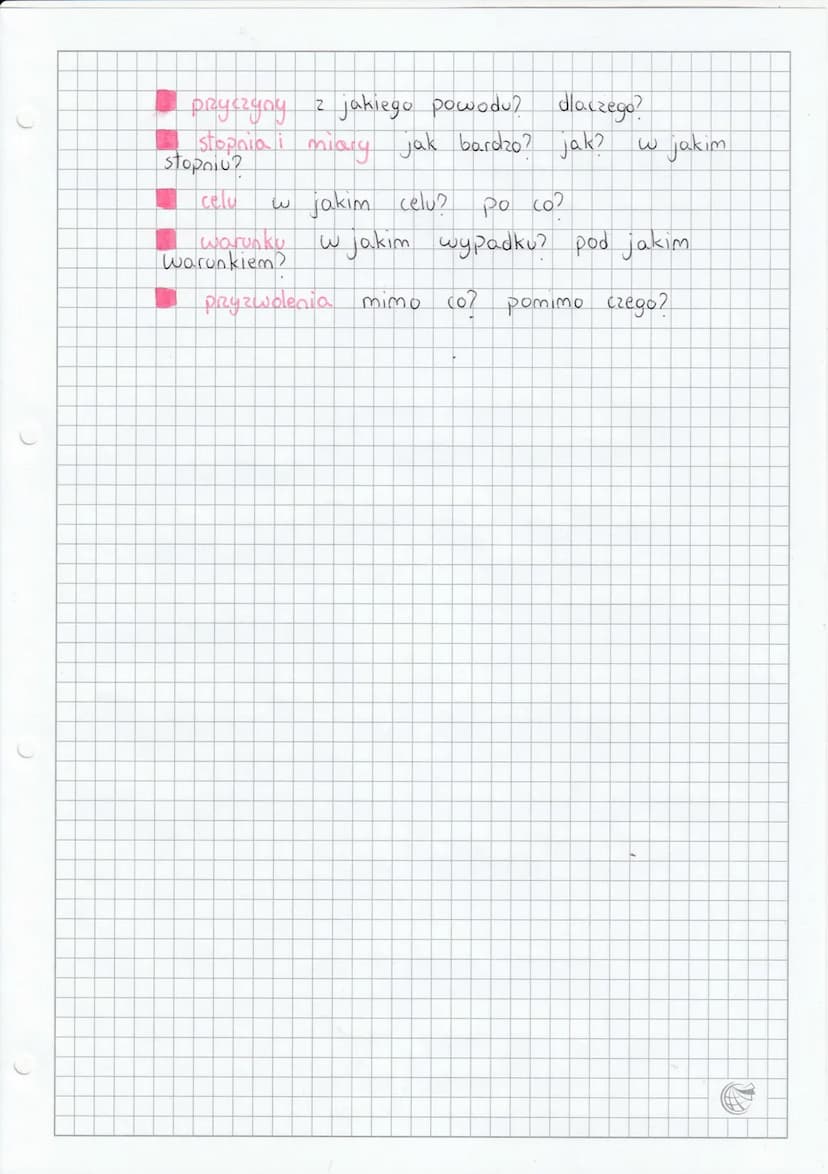 przyczyny z jakiego powodu? dlaczego?
stopnia i miary jak bardzo? jak? w jakim
stopniu?
celu w jakim celu? po co?
warunku w jakim wypadku? pod jakim
warunkiem?
przyzwolenia mimo co? pomimo czego?